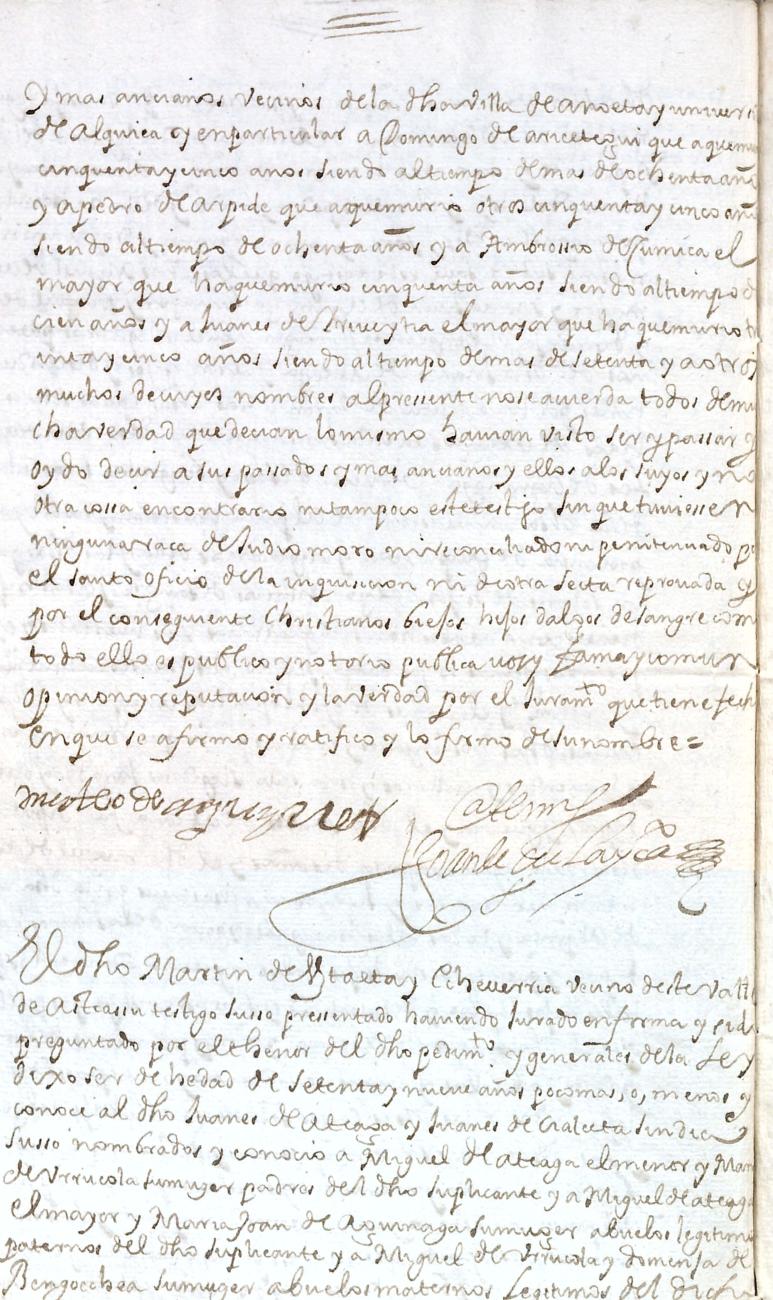 Y mas ancianos vecinos de la dha villa de anoeta y univer
de Alquica y en particular a Domingo de aricetegui que a que mu
cinquenta y cinco anos siendo al tiempo de mas de ochenta años
y a pedro de arpide que a que murio otros cinquenta y cinco años
siendo al tiempo de ochenta años y a Ambrossio de Cumica el
mayor que ha que murio cinquenta años siendo al tiempo de
cien años y a Juanes de el mayor que ha que murio tre
inta y cinco años siendo al tiempo de mas de setenta y a otros
muchos de cuyos nombres al pressente no se acuerda todos de mu
cha verdad que decian lo mismo havian visto ser y passar y
oydo decir a sus passados y mas ancianos y ellos a los suyos y no
otra cossa en contrario ni tampoco este testigo sin que tuviessen
ninguna raca de Judio moro ni reconciliado ni penitenciado po
el santo oficio de la inquisicion ni de otra secta reprovada y
por el consequiente Christianos biejos hijos dalgos de sangre com
todo ello es publico y notorio publica vos y fama y comun
opinion y reputacion y la verdad por el Juramto que tiene fech
en que se afirmo y ratifico y lo firmo de su nombre =
mateo de
Ante mi
El dho Martin de Ytaeta y Echeverria vecino deste valle
de Asteassu testigo susso pressentado haviendo Jurado en forma y sido
preguntado por el thenor del dho pedimto y generales de la Ley
dixo ser de hedad de setenta y nueve años poco mas, o, menos y
conoce al dho Juanes de Ateaga y Juanes de sindico
susso nombrados y conocio a Miguel de ateaga el menor y Mari
de Urrucola su muger padres del dho suplicante y a Miguel de ateaga
el mayor y Maria Joan de Aguinaga su muger abuelos legitimos
paternos del dho suplicante y a Miguel de Urrucola y domenja de
Bengoechea su muger abuelos maternos legitimos del dicho